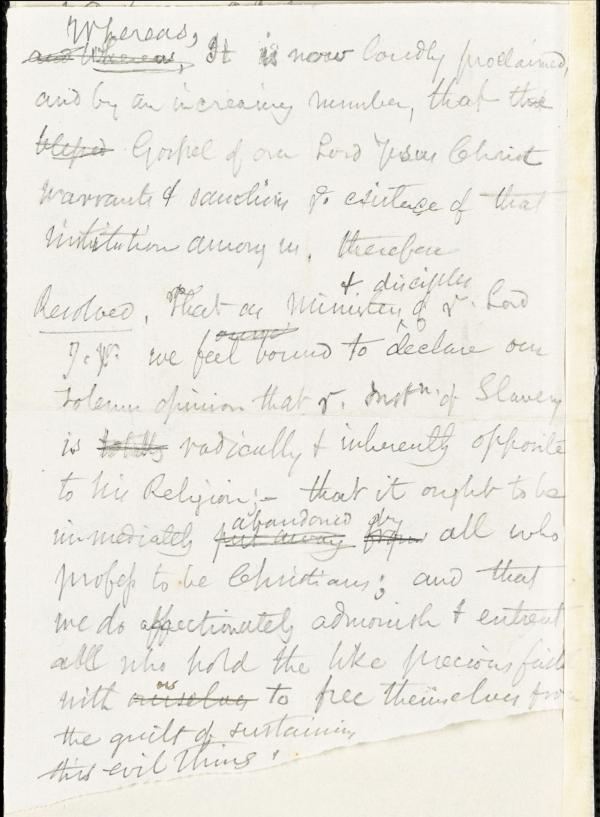 Whereas,
and Whereas, It is now loudly proclaimed,
and by an increasing number, that the
blessed Gospel of our Lord Jesus Christ
warrants & sanctions ye existence of that
institution among us, therefore
& disciples
Resolved, That as Ministers of ye Lord
J. X. we feel bound to declare our
solemn opinion that ye Instn. of Slavery
is totally radically & inherently opposite
to his Religion:— that it ought to be
abandoned by
immediately put away from all who
profess to be Christians; and that
we do affectionately admonish & entreat
all who hold the like precious faith
us
with ourselves to free themselves from
the guilt of sustaining
this evil thing.